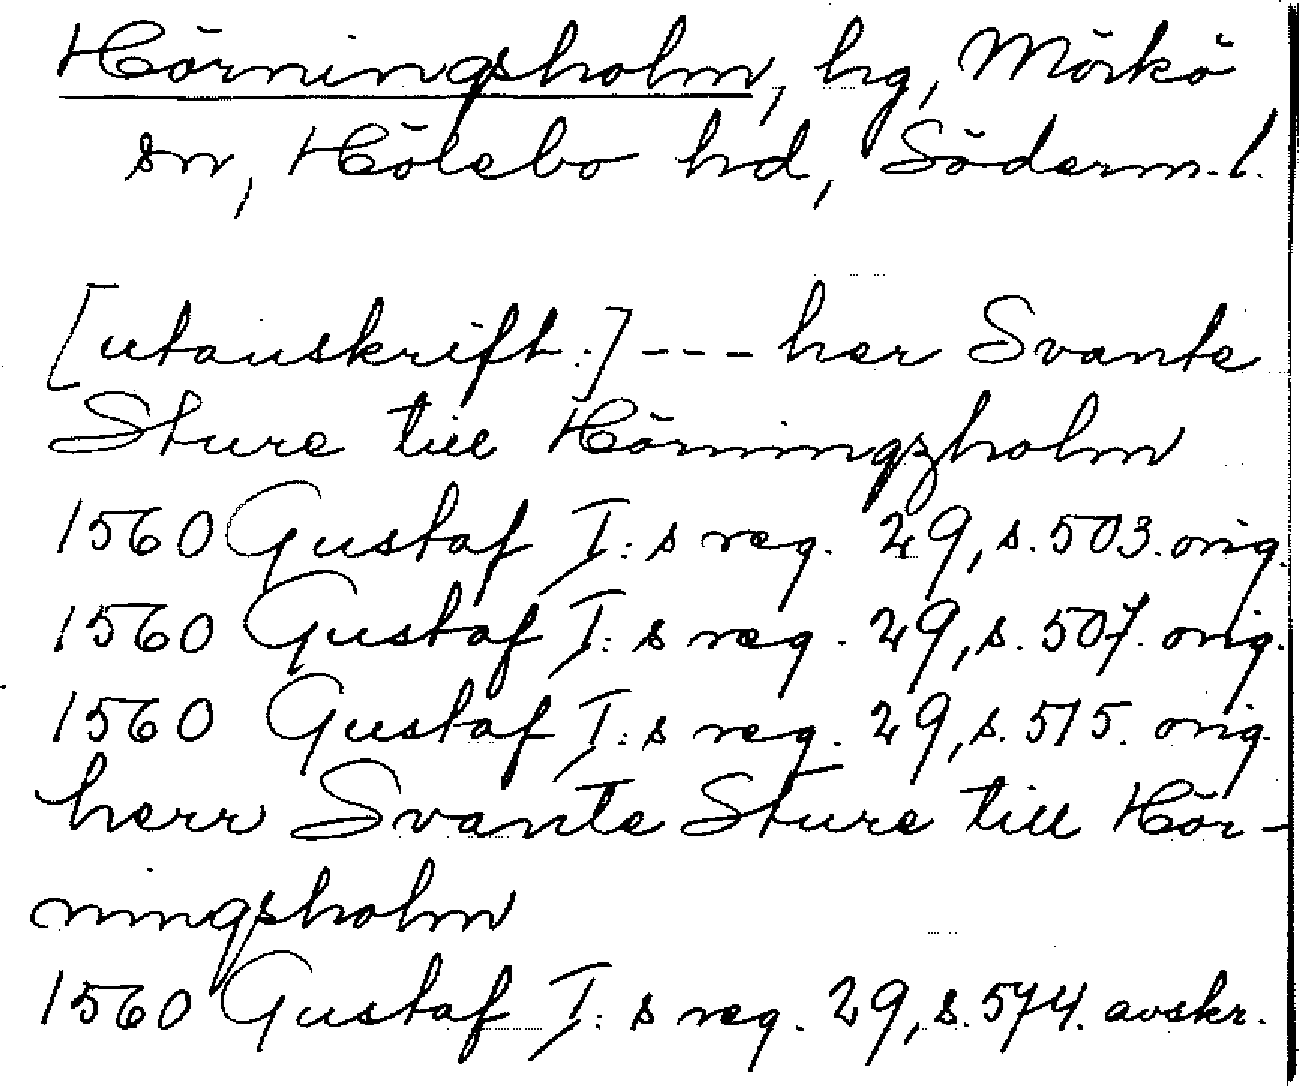 Hörningsholm, hg, Mörkö
sn, Hölebo hd, Söderm.l.
[utanskrift:] --- her Svante
Sture till Hörningzholm
1560 Gustaf I:s reg. 29, s. 503. orig.
1560 Gustaf I:s reg. 29, s. 507. orig.
1560 Gustaf I:s reg. 29, s. 515. orig.
herr Svante Sture till Hör-
ningsholm
1560 Gustaf I:s reg. 29, s. 574. avskr.